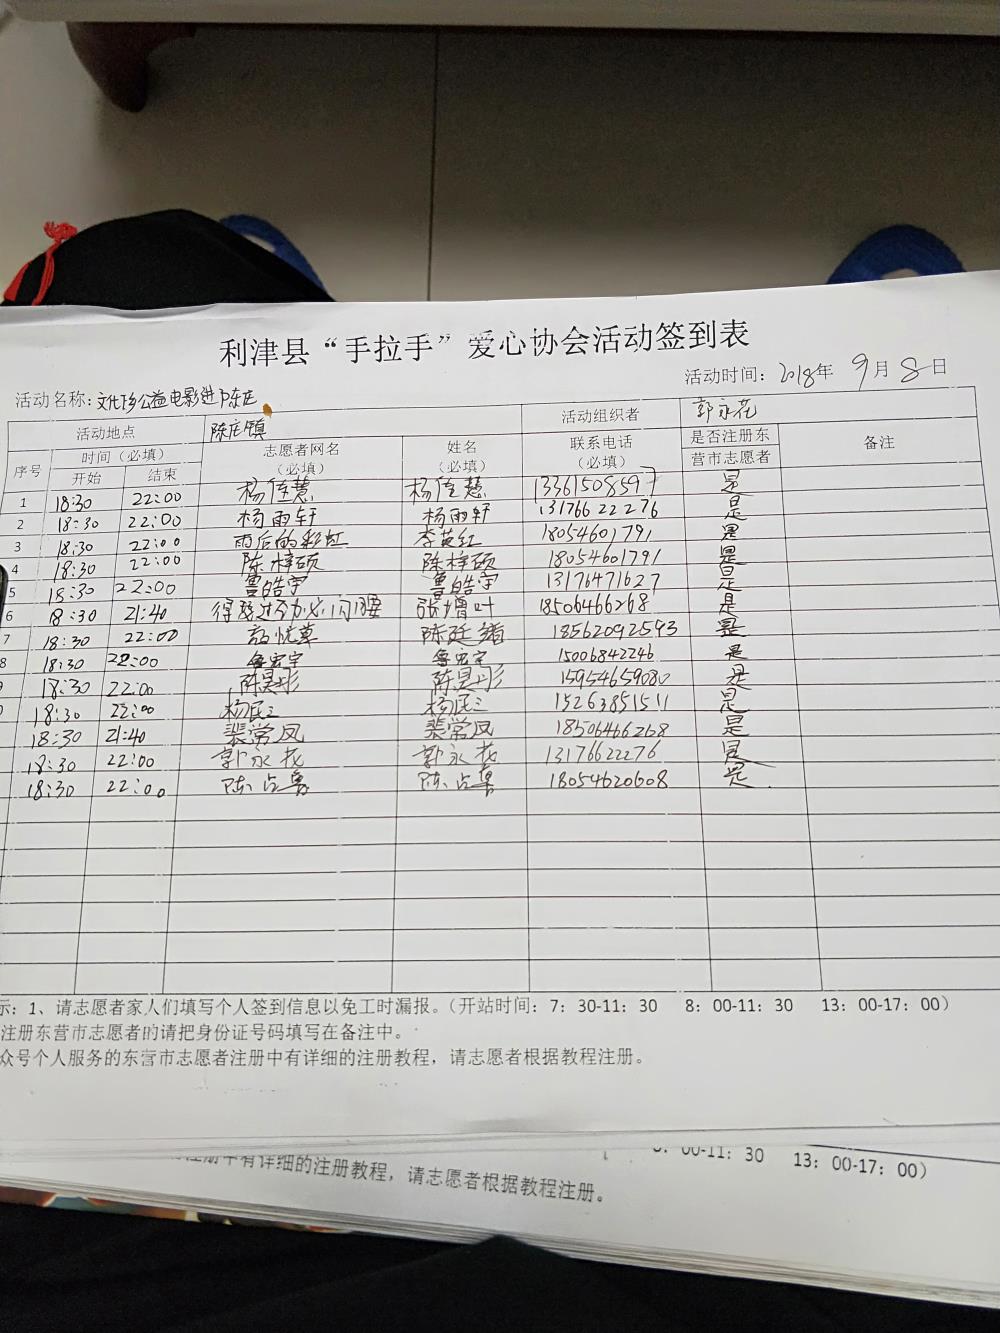 利津县“手拉手”爱心协会活动签到表
活动时间：2018年 9月 8日
活动名称：文化下乡公益电影进陈庄
活动地点 陈庄镇 活动组织者 郭永花
序号 时间（必填） 志愿者网名（必填） 姓名（必填） 联系电话（必填） 是否注册东营市志愿者 备注
开始 结束
1 18:30 22:00 杨佳慧 杨佳慧 13361508597 是
2 18:30 22:00 杨雨轩 杨雨轩 13176622276 是
3 18:30 22:00 雨后的彩虹 李英红 18054601791 是
4 18:30 22:00 陈梓硕 陈梓硕 18054601791 是
5 18:30 22:00 鲁皓宇 鲁皓宇 13176471627 是
6 18:30 21:40 得 闪腰 张增叶 18506466268 是
7 18:30 22:00 忘忧草 陈廷 18562092593 是
8 18:30 22:00 鲁宏宇 鲁宏宇 15006842246 是
18:30 22:00 陈昊彤 陈昊彤 15954659080 是
18:30 22:00 杨民三 杨民三 15263851511 是
18:30 21:40 裴常凤 裴常凤 18506466268 是
18:30 22:00 郭永花 郭永花 13176622276 是
18:30 22:00 陈占 陈占 18054620608 是
示：1、请志愿者家人们填写个人签到信息以免工时漏报。（开站时间：7：30-11：30 8：00-11：30 13：00-17：00）
注册东营市志愿者的请把身份证号码填写在备注中。
众号个人服务的东营市志愿者注册中有详细的注册教程，请志愿者根据教程注册。
00-11：30 13：00-17：00）
注册中有详细的注册教程，请志愿者根据教程注册。